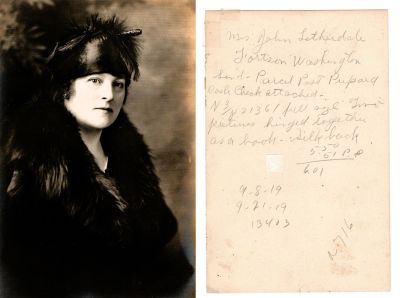 Mrs John Letherdale
Fortson Washington
Send - Parcel Post Prepaid
Cash Check attached -
pictures hinged together
as a book - Silk back
5.50
.51 P.P
6.01
9-8-19
9-21-19
13403